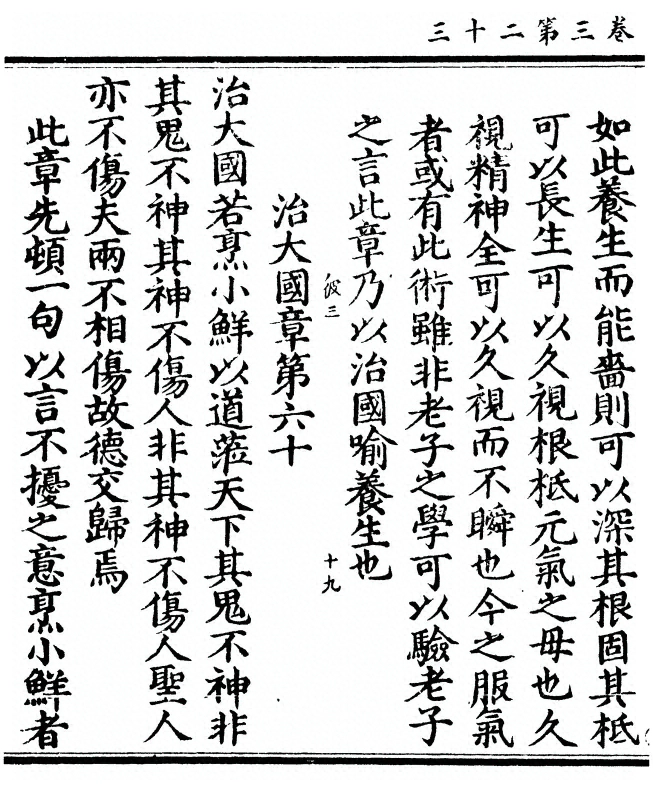 卷三第二十三
如此養生而能嗇則可以深其根固其柢
可以長生可以久視根柢元氣之母也久
視精神全可以久視而不瞬也今之服氣
者或有此術雖非老子之學可以驗老子
之言此章乃以治國喻養生也
彼三
十九
治大國章第六十
治大國若烹小鮮以道蒞天下其鬼不神非
其鬼不神其神不傷人非其神不傷人聖人
亦不傷夫兩不相傷故德交歸焉
此章先頓一句以言不擾之意烹小鮮者